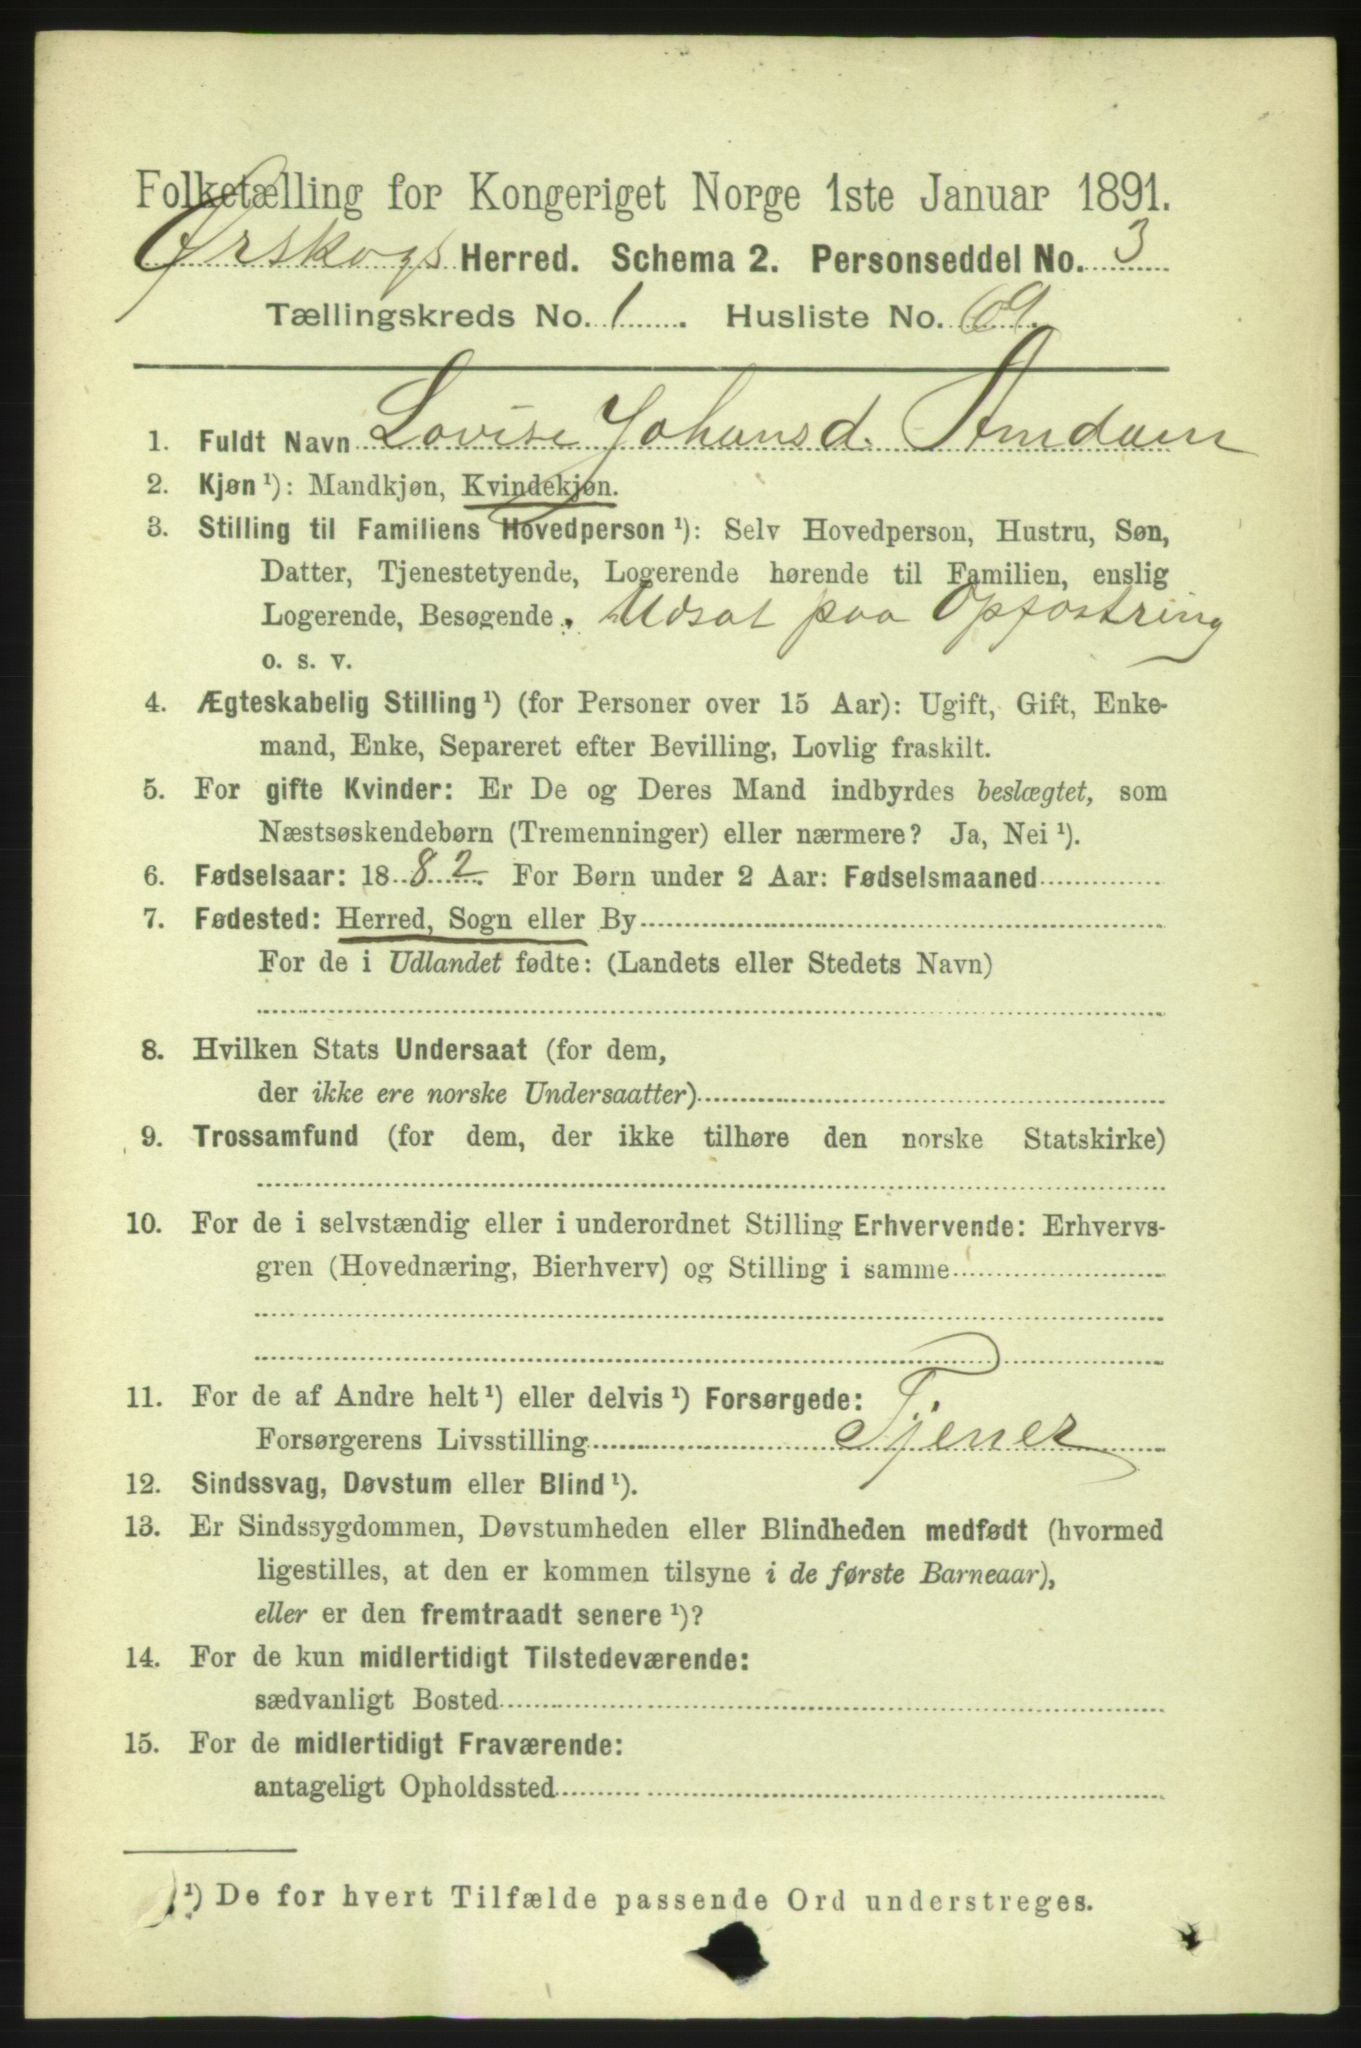 Folketælling for Kongeriget Norge 1ste Januar 1891.
Ørskogs Herred. Schema 2. Personseddel No. 3
Tællingskreds No. 1. Husliste No. 69.
1. Fuldt Navn Lovise Johansd. Amdam
2. Kjøn ¹): Mandkjøn, Kvindekjøn.
3. Stilling til Familiens Hovedperson ¹): Selv Hovedperson, Hustru, Søn,
Datter, Tjenestetyende, Logerende hørende til Familien, enslig
Logerende, Besøgende. Udsat paa Opfostring
o. s. v.
4. Ægteskabelig Stilling ¹) (for Personer over 15 Aar): Ugift, Gift, Enke-
mand, Enke, Separeret efter Bevilling, Lovlig fraskilt.
5. For gifte Kvinder: Er De og Deres Mand indbyrdes beslægtet, som
Næstsøskendebørn (Tremenninger) eller nærmere? Ja, Nei ¹).
6. Fødselsaar: 1882. For Børn under 2 Aar: Fødselsmaaned
7. Fødested: Herred, Sogn eller By
For de i Udlandet fødte: (Landets eller Stedets Navn)
8. Hvilken Stats Undersaat (for dem,
der ikke ere norske Undersaatter)
9. Trossamfund (for dem, der ikke tilhøre den norske Statskirke)
10. For de i selvstændig eller i underordnet Stilling Erhvervende: Erhvervs-
gren (Hovednæring, Bierhverv) og Stilling i samme
11. For de af Andre helt ¹) eller delvis ¹) Forsørgede:
Forsørgerens Livsstilling Tjener
12. Sindssvag, Døvstum eller Blind ¹).
13. Er Sindssygdommen, Døvstumheden eller Blindheden medfødt (hvormed
ligestilles, at den er kommen tilsyne i de første Barneaar),
eller er den fremtraadt senere ¹)?
14. For de kun midlertidigt Tilstedeværende:
sædvanligt Bosted
15. For de midlertidigt Fraværende:
antageligt Opholdssted
¹) De for hvert Tilfælde passende Ord understreges.